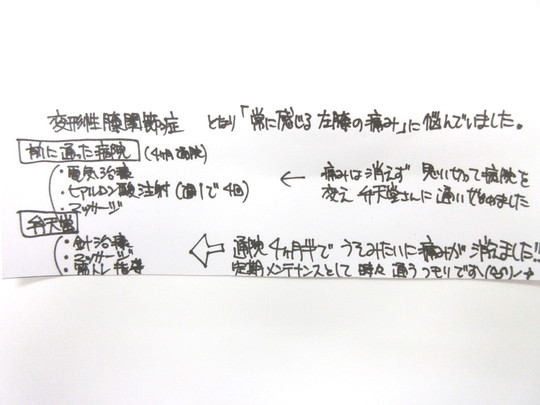 変形性膝関節症 となり「常に感じる左膝の痛み」に悩んでいました。
前に通った病院 (4ヶ月通院)
・電気治療
・ヒアルロン酸注射(週1で4回) ← 痛みは消えず 思いきって病院を
・マッサージ 変え 弁天堂さんに通いはじめました
弁天堂
・針治療 ⇦ 通院4ヶ月半で うそみたいに痛みが 消えました!!
・マッサージ
・筋トレ指導 定期メンテナンスとして 時々 通うつもりです\(^o^)/